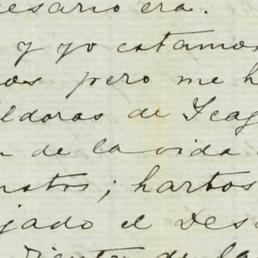 esario era.
y yo estamos
os pero me h
ldoras de Icag
n de la vida
nstos; hartos
jado el Des
diente de la